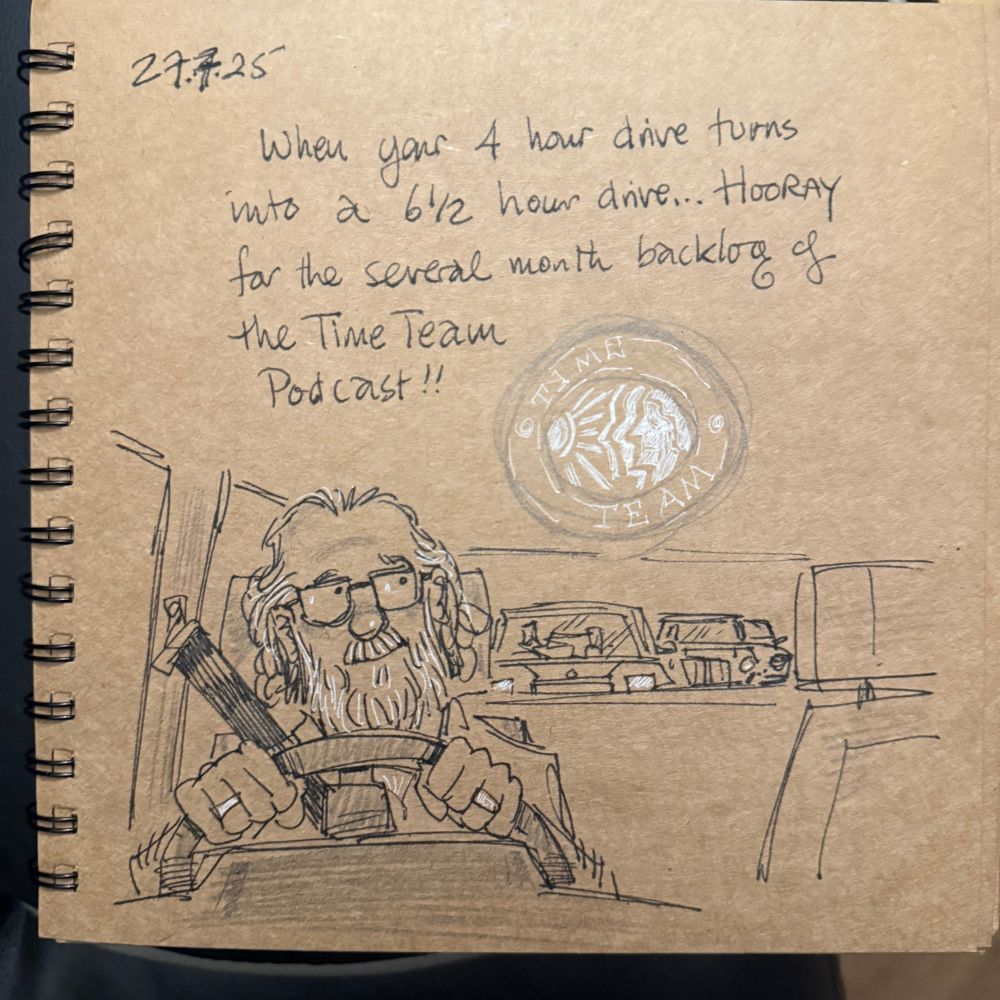 27.7.25
When your 4 hour drive turns
into a 6 1/2 hour drive... HOORAY
for the several month backlog of
the Time Team
Podcast!!
TIME
TEAM